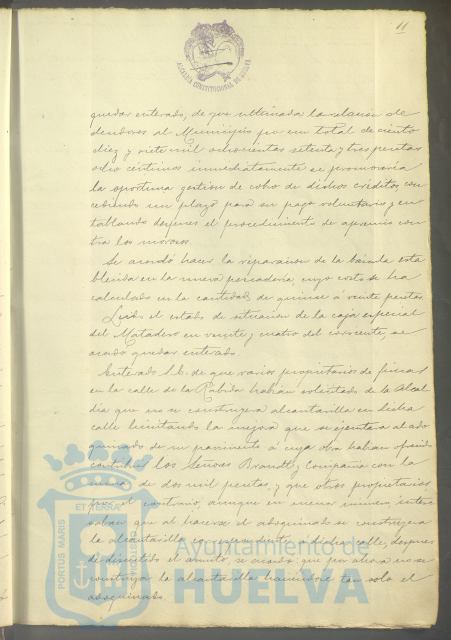 11
ALCALDIA CONSTITUCIONAL DE HUELVA
quedar enterado, de que ultimada la relacion de
deudores al Municipio por un total de ciento
diez y siete mil ochocientas setenta y tres pesetas
ocho céntimos inmediatamente se promoveria
la oportuna gestion de cobro de dichos créditos, con
cediendo un plazo para su pago voluntario, y en
tablando despues el procedimiento de apremio con
tra los morosos.
Se acordó hacer la reparacion de la báscula esta
blecida en la nueva pescaderia cuyo costo se ha
calculado en la cantidad de quince á veinte pesetas.
Leido el estado de situacion de la caja especial
del Matadero en veinte y cuatro del corriente, se
acordó quedar enterado.
Enterado S.E. de que varios propietarios de fincas
en la calle de la Rábida habian solicitado de la Alcal
dia que no se construyera alcantarilla en dicha
calle limitando la mejora que se ejecutara al ado
quinado de su pavimento á cuya obra habian ofrecido
contribuir los Señores Brandt y Compañia con la
suma de dos mil pesetas, y que otros propietarios
por el contrario, aunque en menor número, intere
saban que al hacerse el adoquinado se construyera
la alcantarilla correspondiente á dicha calle, despues
de discutido el asunto, se acordó que por ahora no se
construya la alcantarilla haciendose tan solo el
adoquinado.
PORTUS MARIS
ET TERRAE
Ayuntamiento de
HUELVA